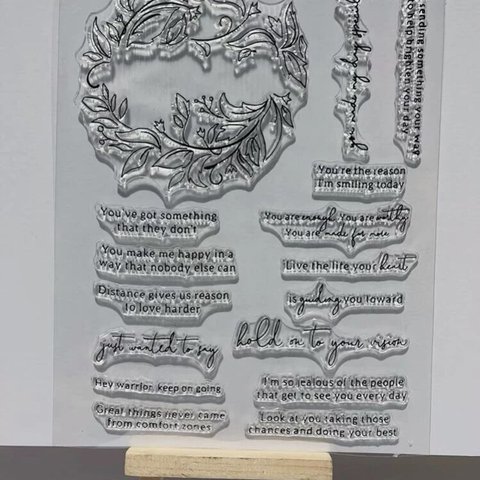 you made my day special
sending something your way
to help brighten your day
You're the reason
I'm smiling today
You've got something
that they don't
You are enough. You are worthy
You are made for more
You make me happy in a
way that nobody else can
Live the life your heart
Distance gives us reason
to love harder
is guiding you toward
just wanted to say
hold on to your vision
Hey warrior, keep on going
I'm so jealous of the people
that get to see you every day
Great things never came
from comfort zones
Look at you taking those
chances and doing your best